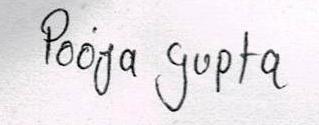 Pooja gupta